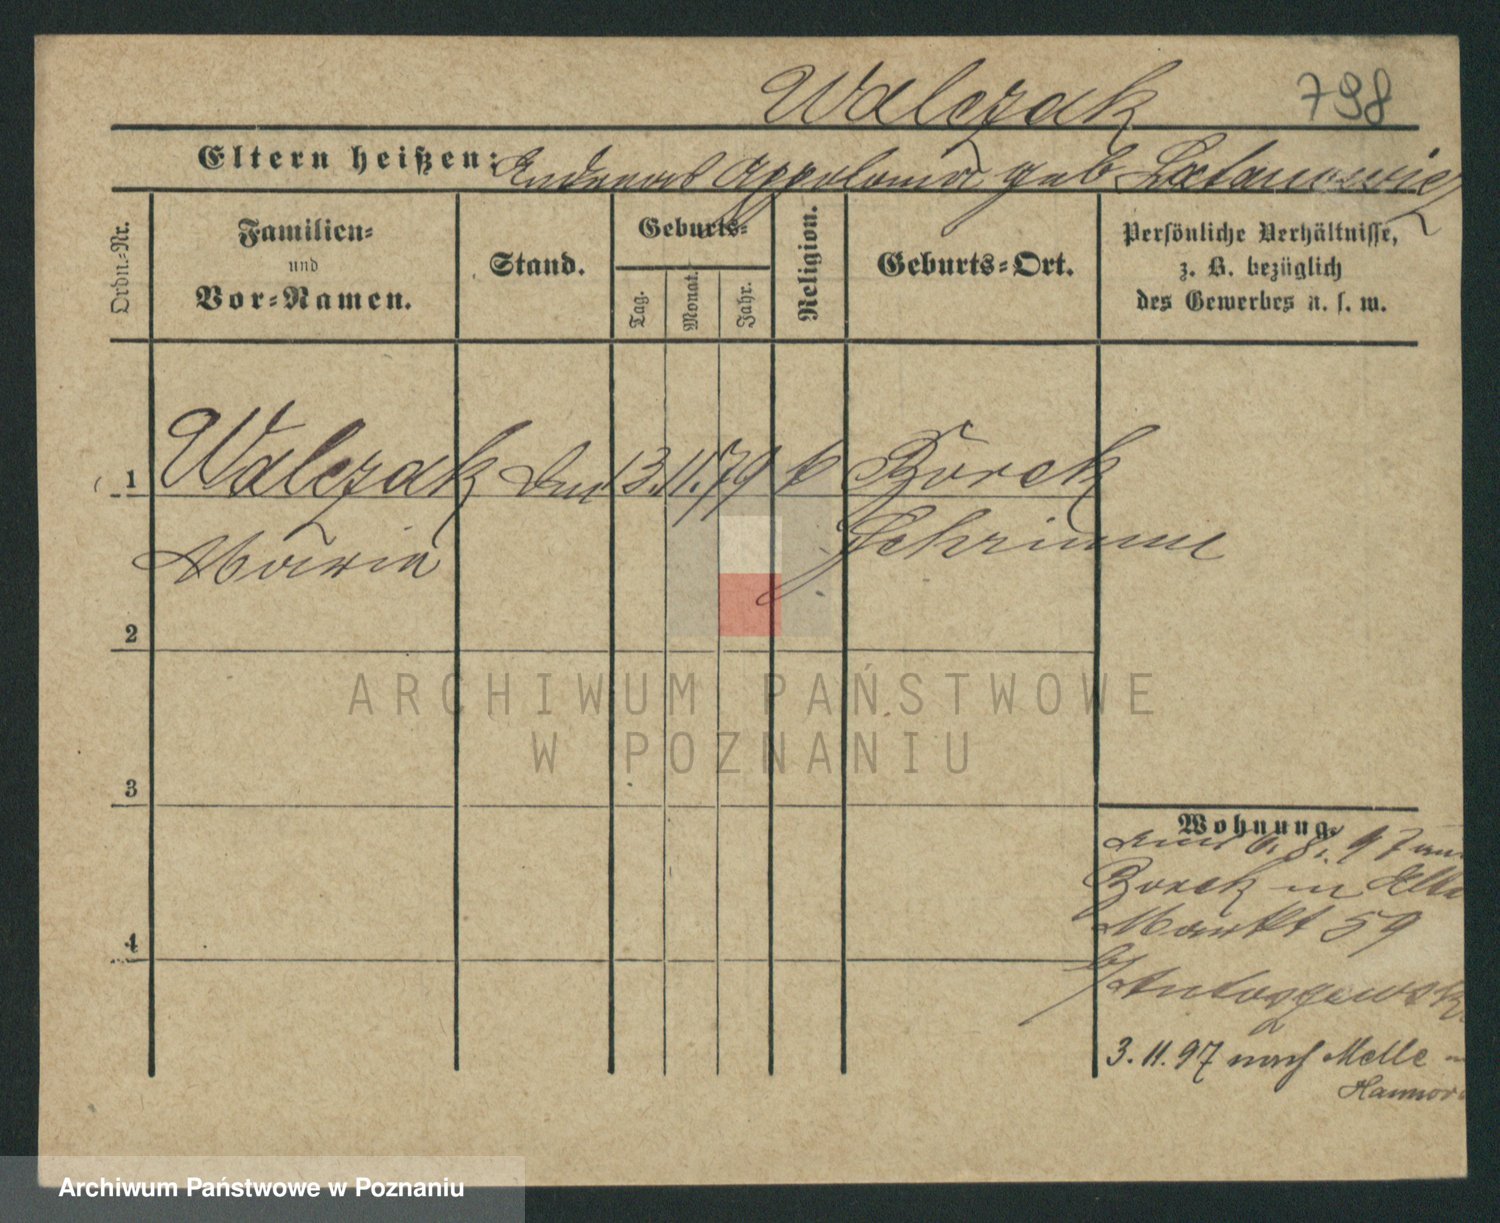 Walczak 798
Eltern heißen: Andreas Appolonia geb
Ordn.-Nr.
Familien-
und
Vor-Namen.
Stand.
Geburts-
Tag.
Monat.
Jahr.
Religion.
Geburts-Ort.
Persönliche Verhältnisse,
z. B. bezüglich
des Gewerbes u. s. w.
1 Walczak 13. 11. 79 Borek
Maria Schrimm
2
3
4
Wohnung.
6. 8. 97
Borek in
Markt 59
3. 11. 97 nach Melle
Hannov
ARCHIWUM PAŃSTWOWE
W POZNANIU
Archiwum Państwowe w Poznaniu